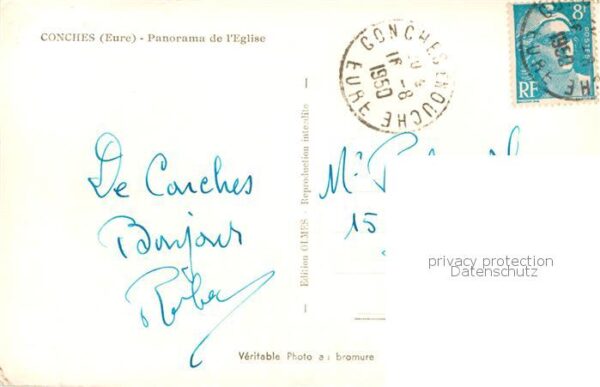 CONCHES (Eure) - Panorama de l'Eglise
CONCHES EN OUCHE
16 -8
1950
EURE
8F
RF
De Conches
Bonjour
Mr
15
Edition OLMES - Reproduction interdite
privacy protection
Datenschutz
Véritable Photo au bromure